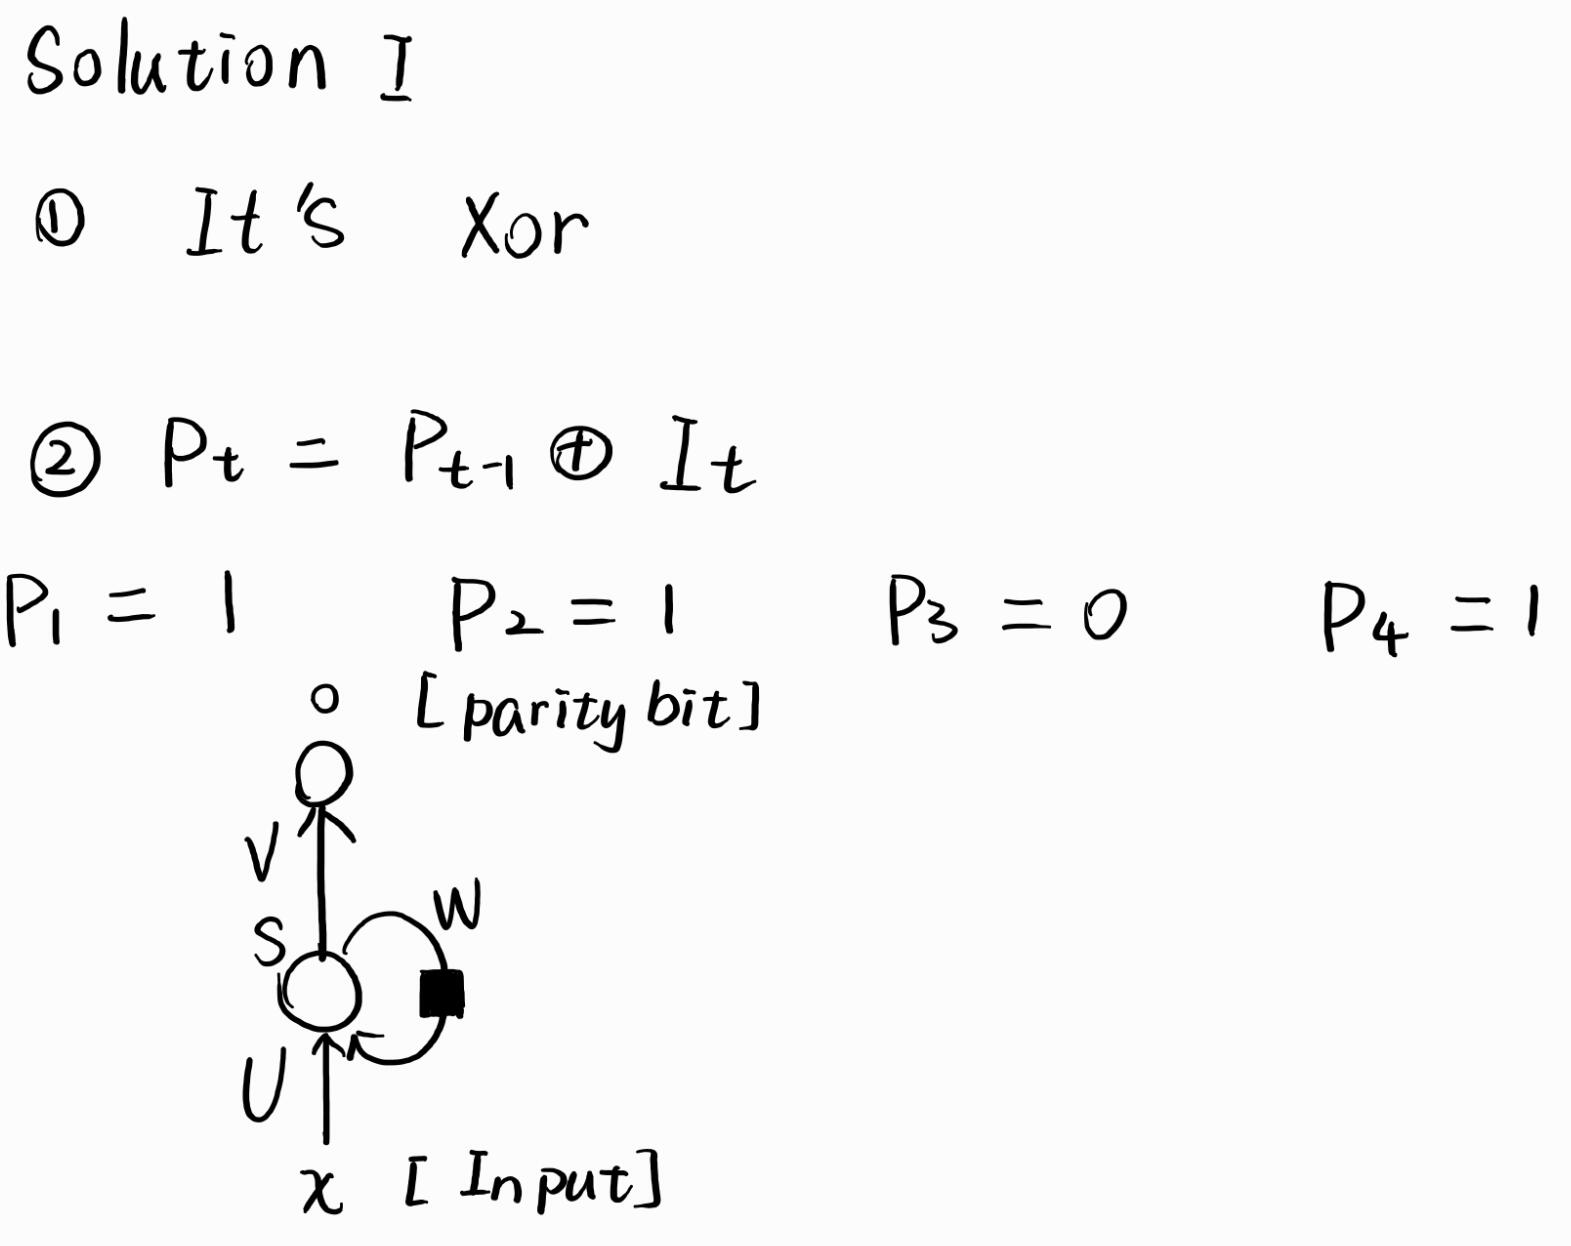 Solution I
① It's Xor
② Pt = Pt-1 ⊕ It
P1 = 1 P2 = 1 P3 = 0 P4 = 1
o [parity bit]
V
W
S
U
x [Input]